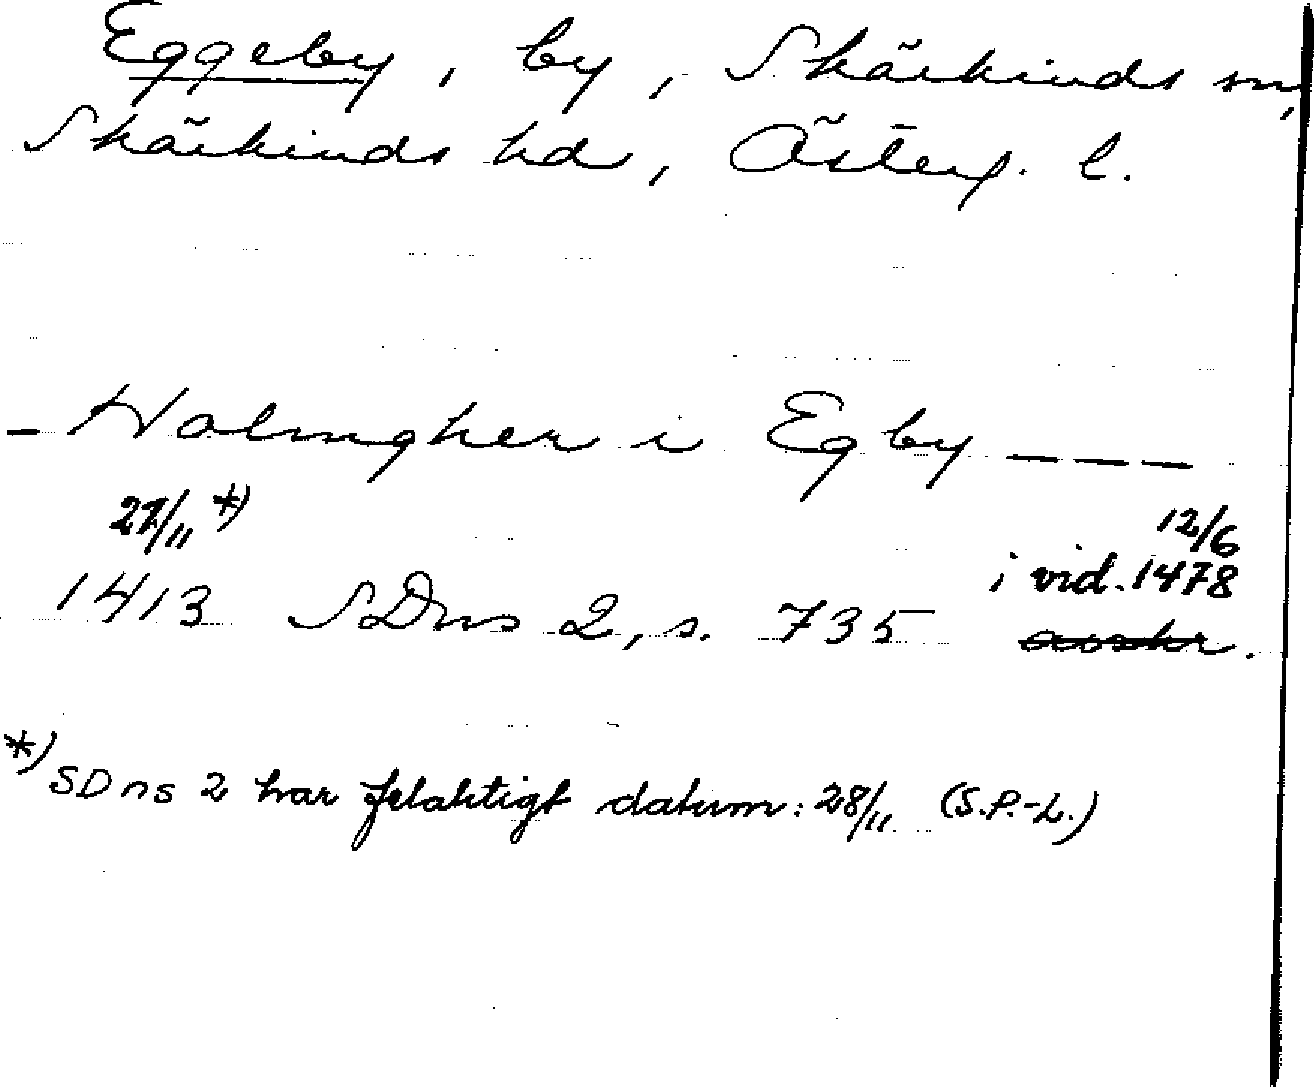 Eggeby, by, Skärkinds sn,
Skärkinds hd, Österg. l.
- Holmgher i Egby - - -
27/11 *) 12/6
i vid. 1478
1413 SDns 2, s. 735 avskr.
*) SDns 2 har felaktigt datum: 28/11 (S.P.-L.)